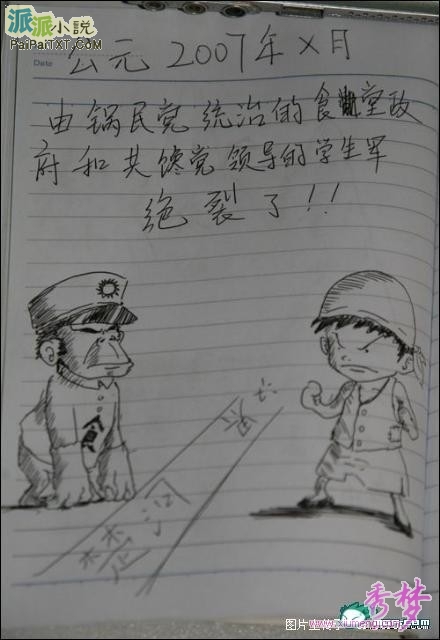 派派小說
PaiPaiTXT.com
Date
公元 2007年 X月
由锅民党统治的食堂政
府和共馋党领导的学生军
绝裂了!!
食
楚河
秀梦